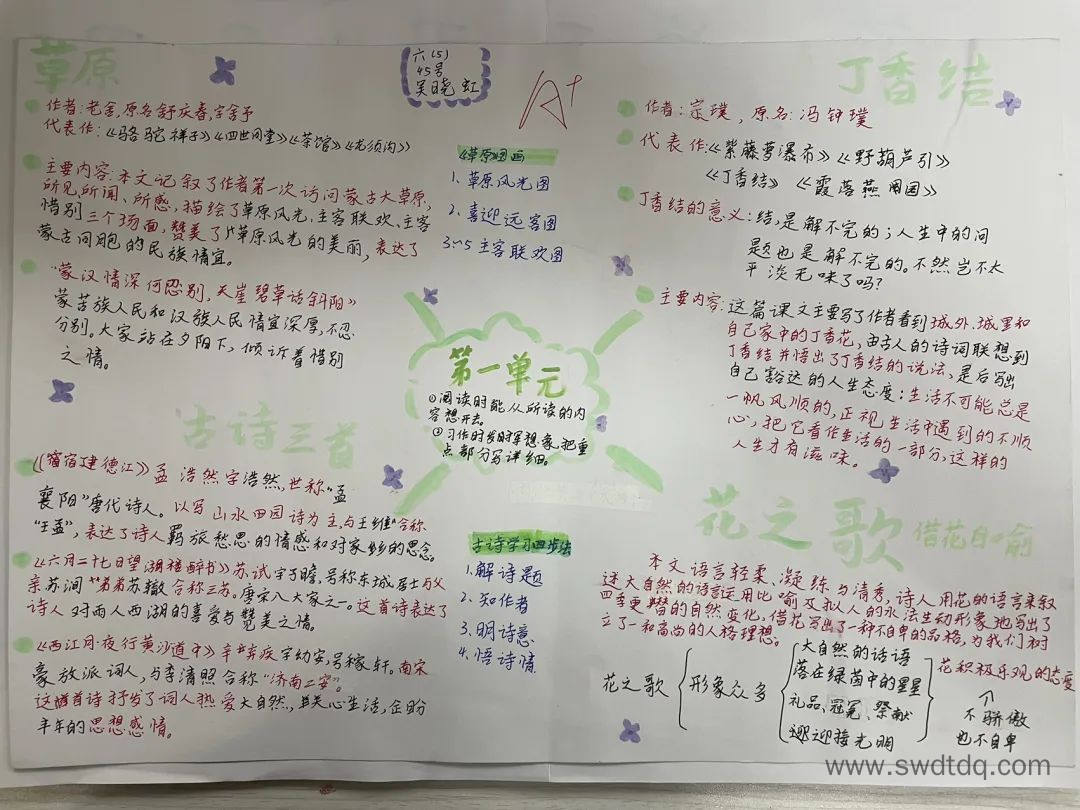 草原
六(5)
45号
吴晓虹
A+
作者:老舍,原名舒庆春,字舍予
代表作:《骆驼祥子》《四世同堂》《茶馆》《龙须沟》
主要内容:本文记叙了作者第一次访问蒙古大草原,
所见、所闻、所感,描绘了草原风光、主客联欢、主客
惜别三个场面,赞美了草原风光的美丽,表达了
蒙古同胞的民族情宜。
"蒙汉情深何忍别,天崖碧草话斜阳》
蒙苦族人民和汉族人民情宜深厚,不忍
分别。大家站在夕阳下,倾诉着惜别
之情。
《草原》图画
1.草原风光图
2.喜迎远客图
3~5主客联欢图
丁香结
作者:宗璞,原名:冯钟璞
代表作:《紫藤萝瀑布》《野葫芦引》
《丁香结》《霞落燕园》
丁香结的意义:结,是解不完的;人生中的问
题也是解不完的。不然岂不太
平淡无味了吗?
主要内容:这篇课文主要写了作者看到城外、城里和
自己家中的丁香花,由古人的诗词联想到
丁香结并悟出了丁香结的说法,是后写出
自己豁达的人生态度:生活不可能总是
一帆风顺的,正视生活中遇到的不顺
心,把它看作生活的一部分,这样的
人生才有滋味。
第一单元
①阅读时能从所读的内
容想开去。
②习作时发挥想象,把重
点部分写详细。
古诗三首
《宿建德江》孟浩然字浩然,世称"孟
襄阳"唐代诗人。以写山水田园诗为主,与王维合称
"王孟",表达了诗人羁旅愁思的情感和对家乡的思念。
《六月二十七日望湖楼醉书》苏试字子瞻,号称东城居士与父
亲苏洵、弟弟苏辙合称三苏。唐宋八大家之一。这首诗表达了
诗人对雨人西湖的喜爱与赞美之情。
《西江月·夜行黄沙道中》辛弃疾字幼安,号稼轩。南宋
豪放派词人,与李清照合称"济南二安"。
这首诗抒发了词人热爱大自然,关心生活,企盼
丰年的思想感情。
古诗学习四步法
1.解诗题
2.知作者
3.明诗意
4.悟诗情
花之歌 借花自喻
本文语言轻柔、凝练与清秀,诗人用花的语言来叙
述大自然的语言运用比喻及拟人的水法生动形象地写出了
四季更替的自然变化,借花写出了一种不自卑的品格,为我们树
立了一和高尚的人格理想。
花之歌
形象众多
大自然的话语
落在绿茵中的星星
礼品、冠冕、祭献
迎接光明
花积极乐观的态度
不骄傲
也不自卑
www.swdtdq.com